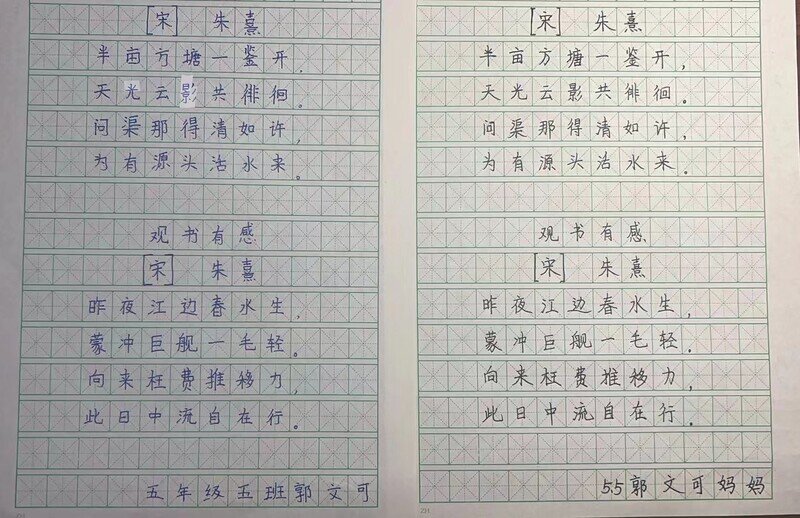 [宋] 朱熹
半亩方塘一鉴开，
天光云影共徘徊。
问渠那得清如许，
为有源头活水来。
观书有感
[宋] 朱熹
昨夜江边春水生，
蒙冲巨舰一毛轻。
向来枉费推移力，
此日中流自在行。
五年级五班郭文可
[宋] 朱熹
半亩方塘一鉴开，
天光云影共徘徊。
问渠那得清如许，
为有源头活水来。
观书有感
[宋] 朱熹
昨夜江边春水生，
蒙冲巨舰一毛轻。
向来枉费推移力，
此日中流自在行。
5.5郭文可妈妈
231